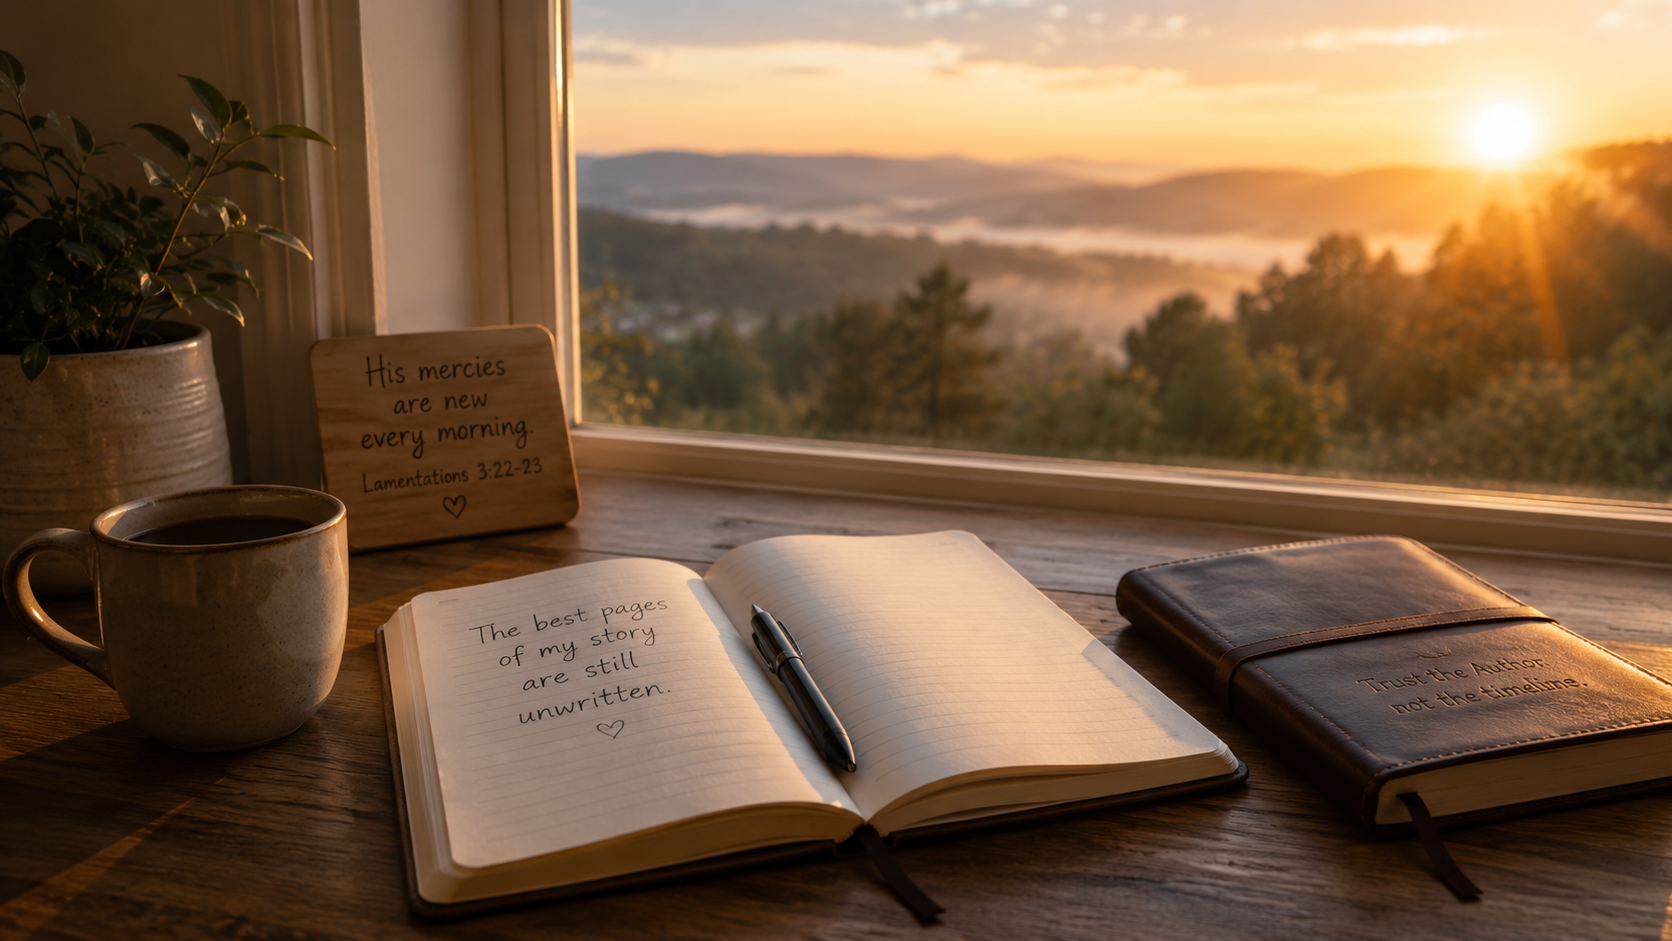 His mercies
are new
every morning.
Lamentations 3:22-23
The best pages
of my story
are still
unwritten.
Trust the Author
not the timeline.